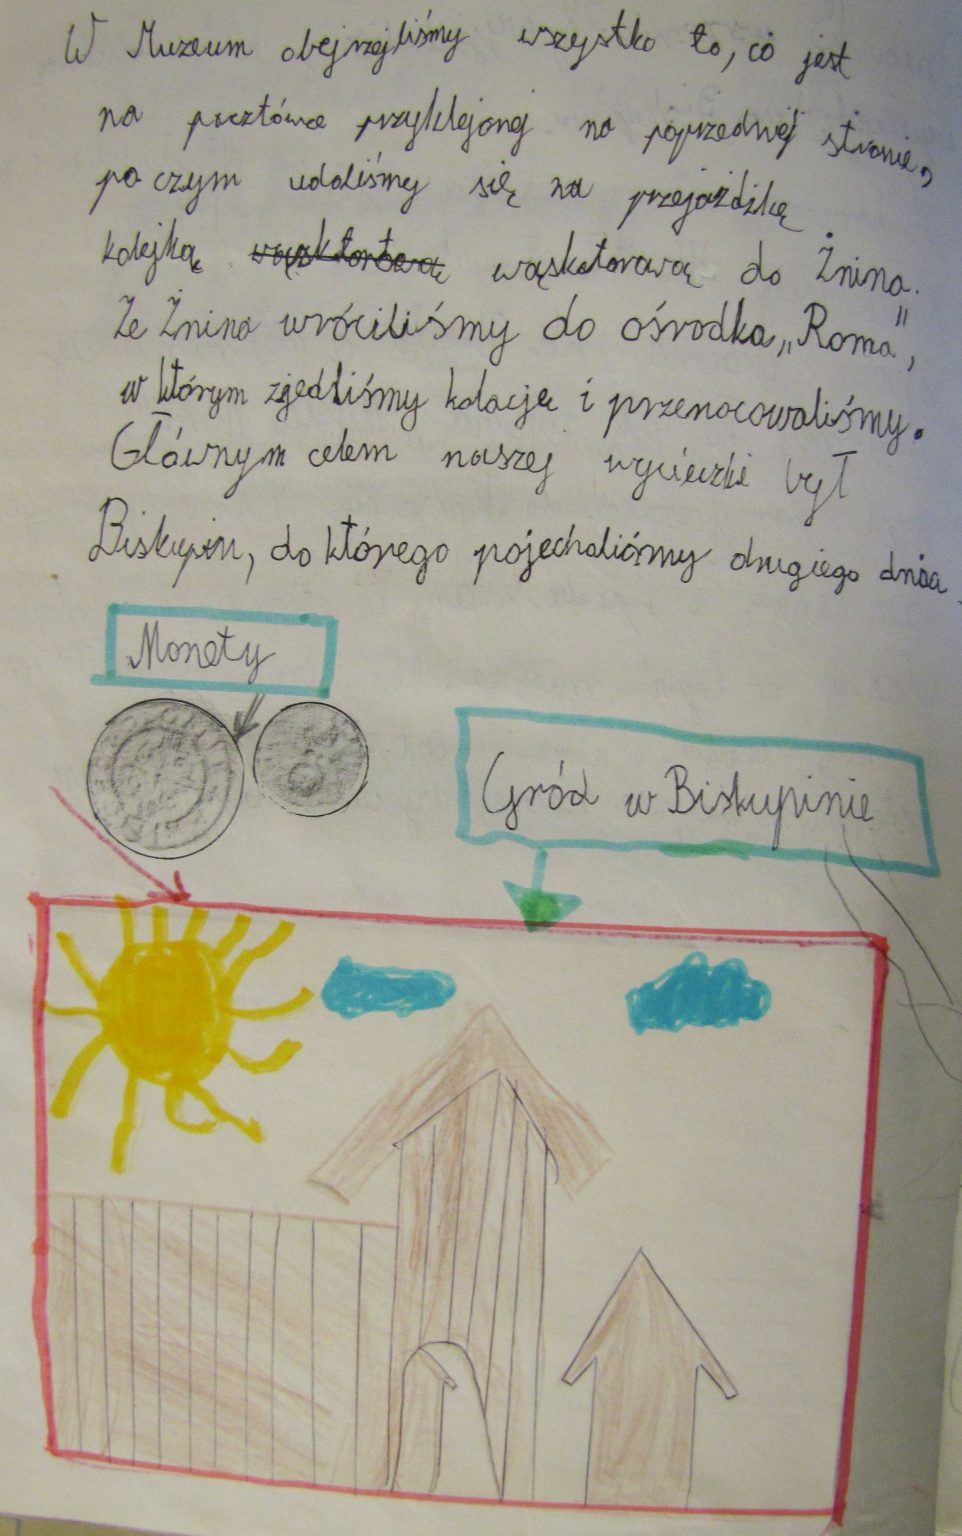 W Muzeum obejrzejliśmy wszystko to, co jest
na pocztówce przyklejonej na poprzedniej stronie,
po czym udaliśmy się na przejażdżkę
kolejką wąsktorową wąskotorową do Żnina.
Ze Żnina wróciliśmy do ośrodka „Roma",
w którym zjedliśmy kolację i przenocowaliśmy.
Głównym celem naszej wycieczki był
Biskupin, do którego pojechaliśmy drugiego dnia.
Monety
Gród w Biskupinie